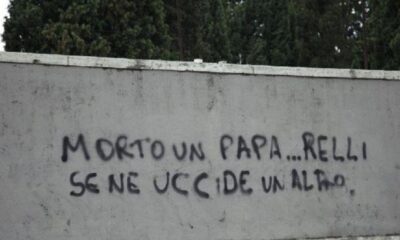 MORTO UN PAPA...RELLI
SE NE UCCIDE UN ALTRO.